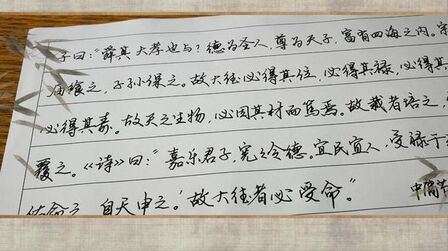 子曰："舜其大孝也与？德为圣人，尊为天子，富有四海之内。宗
庙飨之，子孙保之。故大德必得其位，必得其禄，必得其
必得其寿。故天之生物，必因其材而笃焉。故栽者培之，
覆之。《诗》曰："嘉乐君子，宪宪令德。宜民宜人，受禄于
佑命之，自天申之。'故大德者必受命。"
中庸